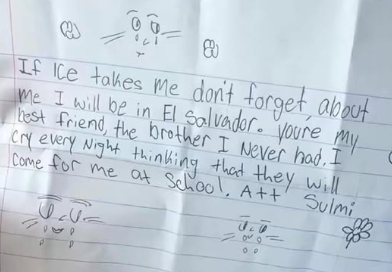 If Ice takes me don't forget about
me I will be in El Salvador. youre my
best friend, the brother I Never had. I
cry every Night thinking that they will
come for me at School. Att Sulmi